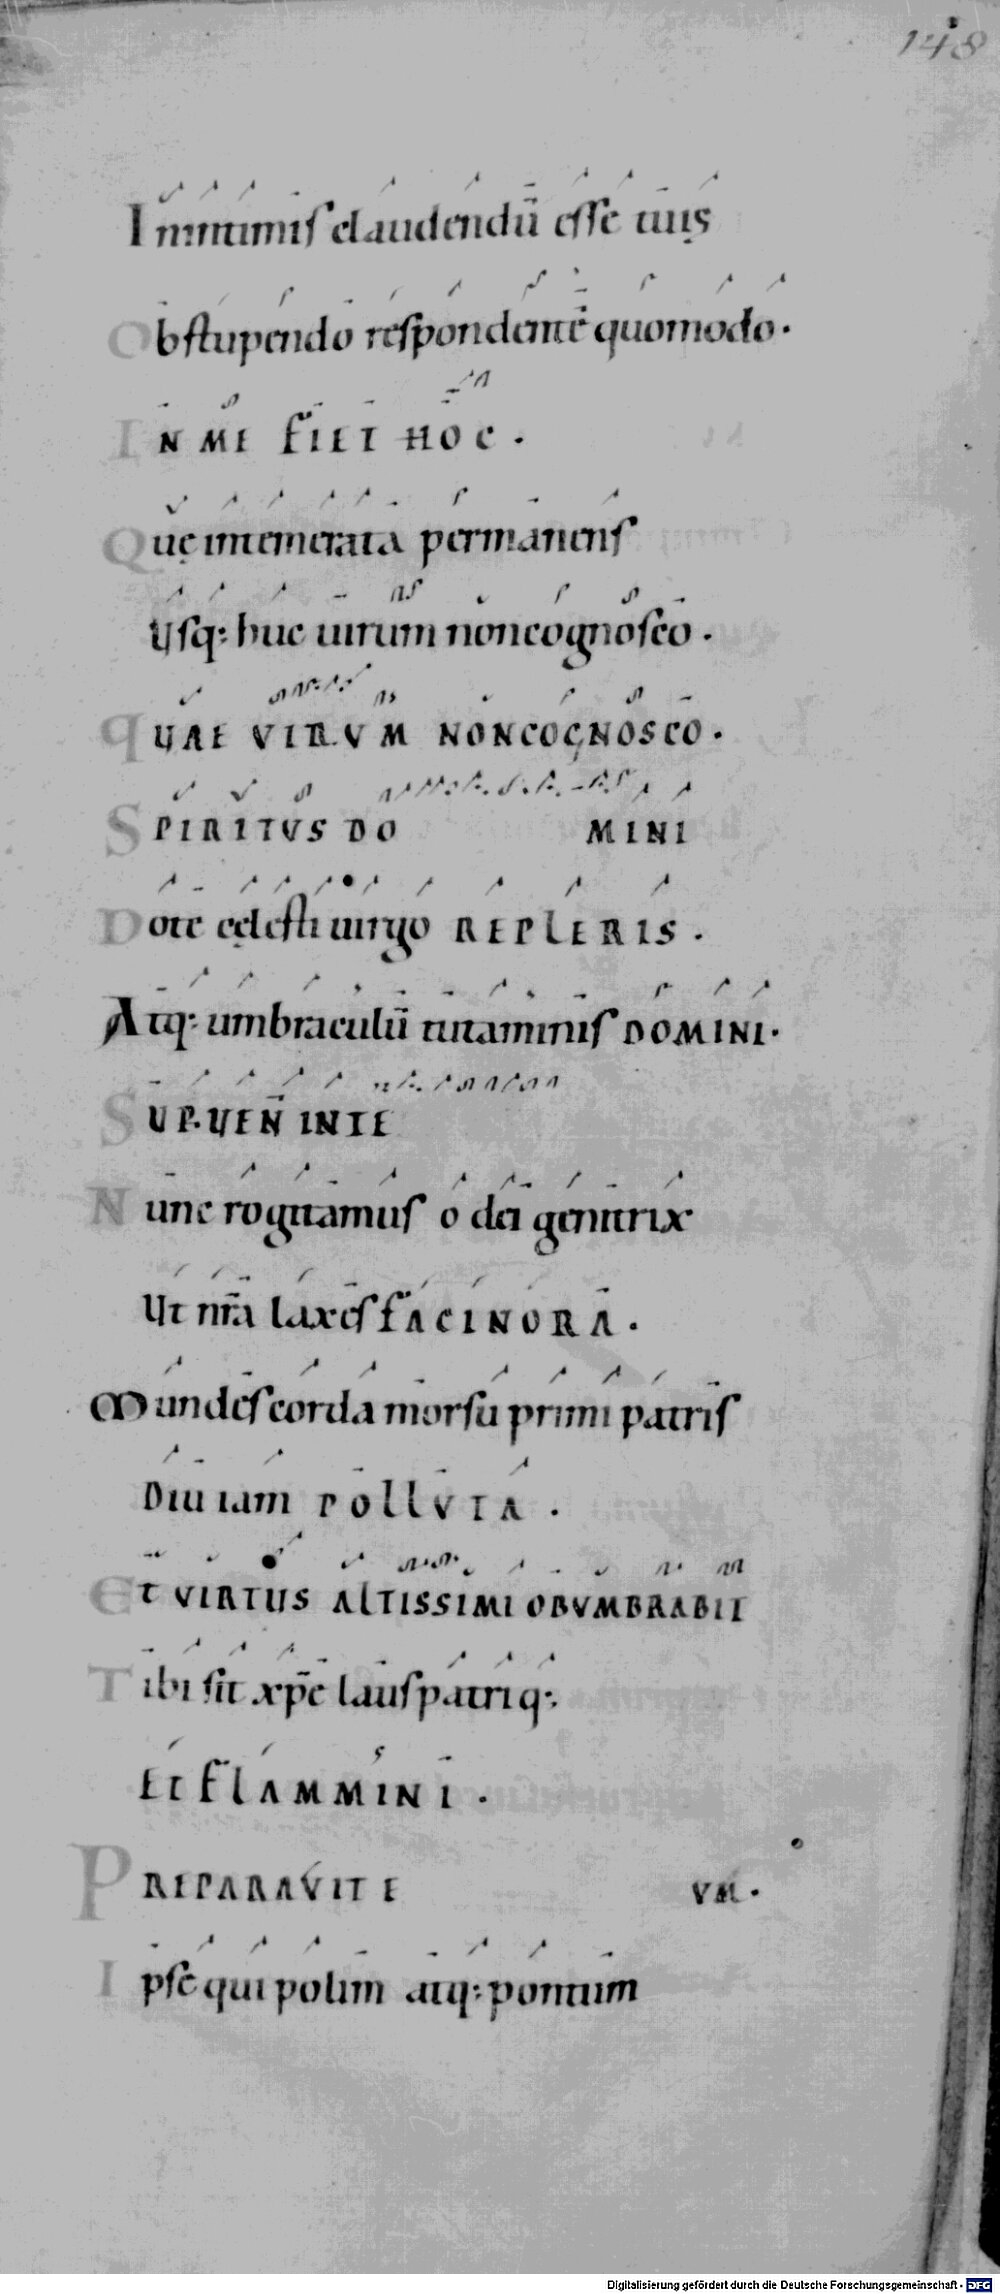 148
In intimis claudendū esse tuis
Obstupendo respondente quomodo.
IN ME FIET HOC.
Quę intemerata permanens
Usq: huc uirum non cognosco.
QUAE VIRVM NON COGNOSCO.
SPIRITVS DO MINI
Dote cęlesti uirgo REPLERIS.
Atq: umbraculū tutaminis DOMINI.
SUP.UEN̄ IN TE
Nunc rogitamus o dei genitrix
Ut nr̄a laxes FACINORA.
Mundes corda morsu primi patris
Diu iam POLLVTA.
ET VIRTUS ALTISSIMI OBVMBRABIT
Tibi sit xp̄e laus patriq:
ET FLAMMINI.
PREPARAVIT E VM.
Ipse qui polum atq: pontum
Digitalisierung gefördert durch die Deutsche Forschungsgemeinschaft - DFG